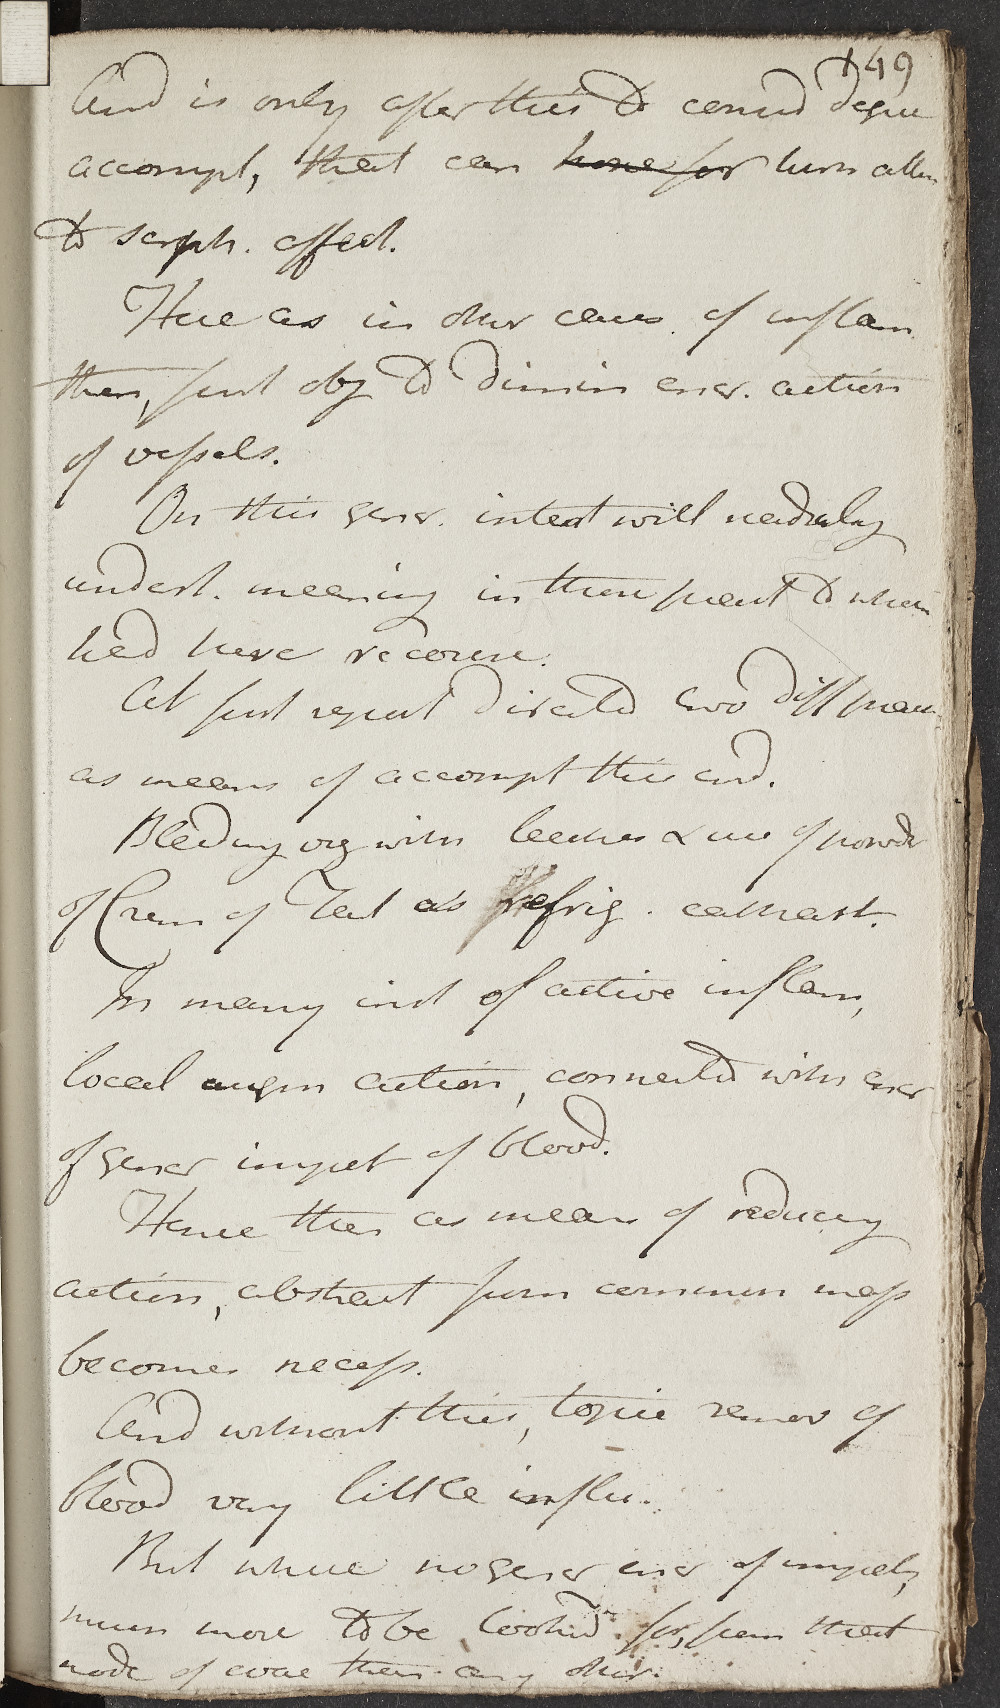 149
And is only after this to consid degree
accompl, that can hope for turn atten
to scroph. affect.
Here as in other cases of inflam
then, first obj to dimin incr. action
of vessels.
On this gener. intent will readily
underst. meaning in those pract to which
had here recourse.
At first report directed two diff prac
as means of accompt this end.
Bleeding viz with leeches & use of powder
of Crem of Tart as refrig. cathart.
In many inst of active inflam,
local augm action, connected with incr
of gener impet of blood.
Hence then as means of reducing
action, abstract from common mass
becomes necess.
And without this, topic remov of
blood very little influ.
But where no gener incr of impet,
much more to be looked for, from that
mode of evac then any other.